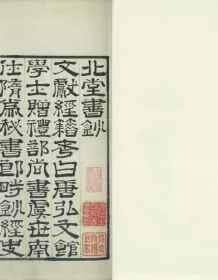 北堂書鈔
文獻經籍考曰唐弘文館
學士贈禮部尚書虞世南
仕隋爲秘書郎時鈔經史